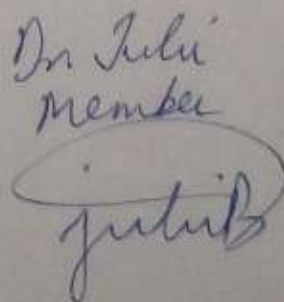 Dr Juli
Member
juliB